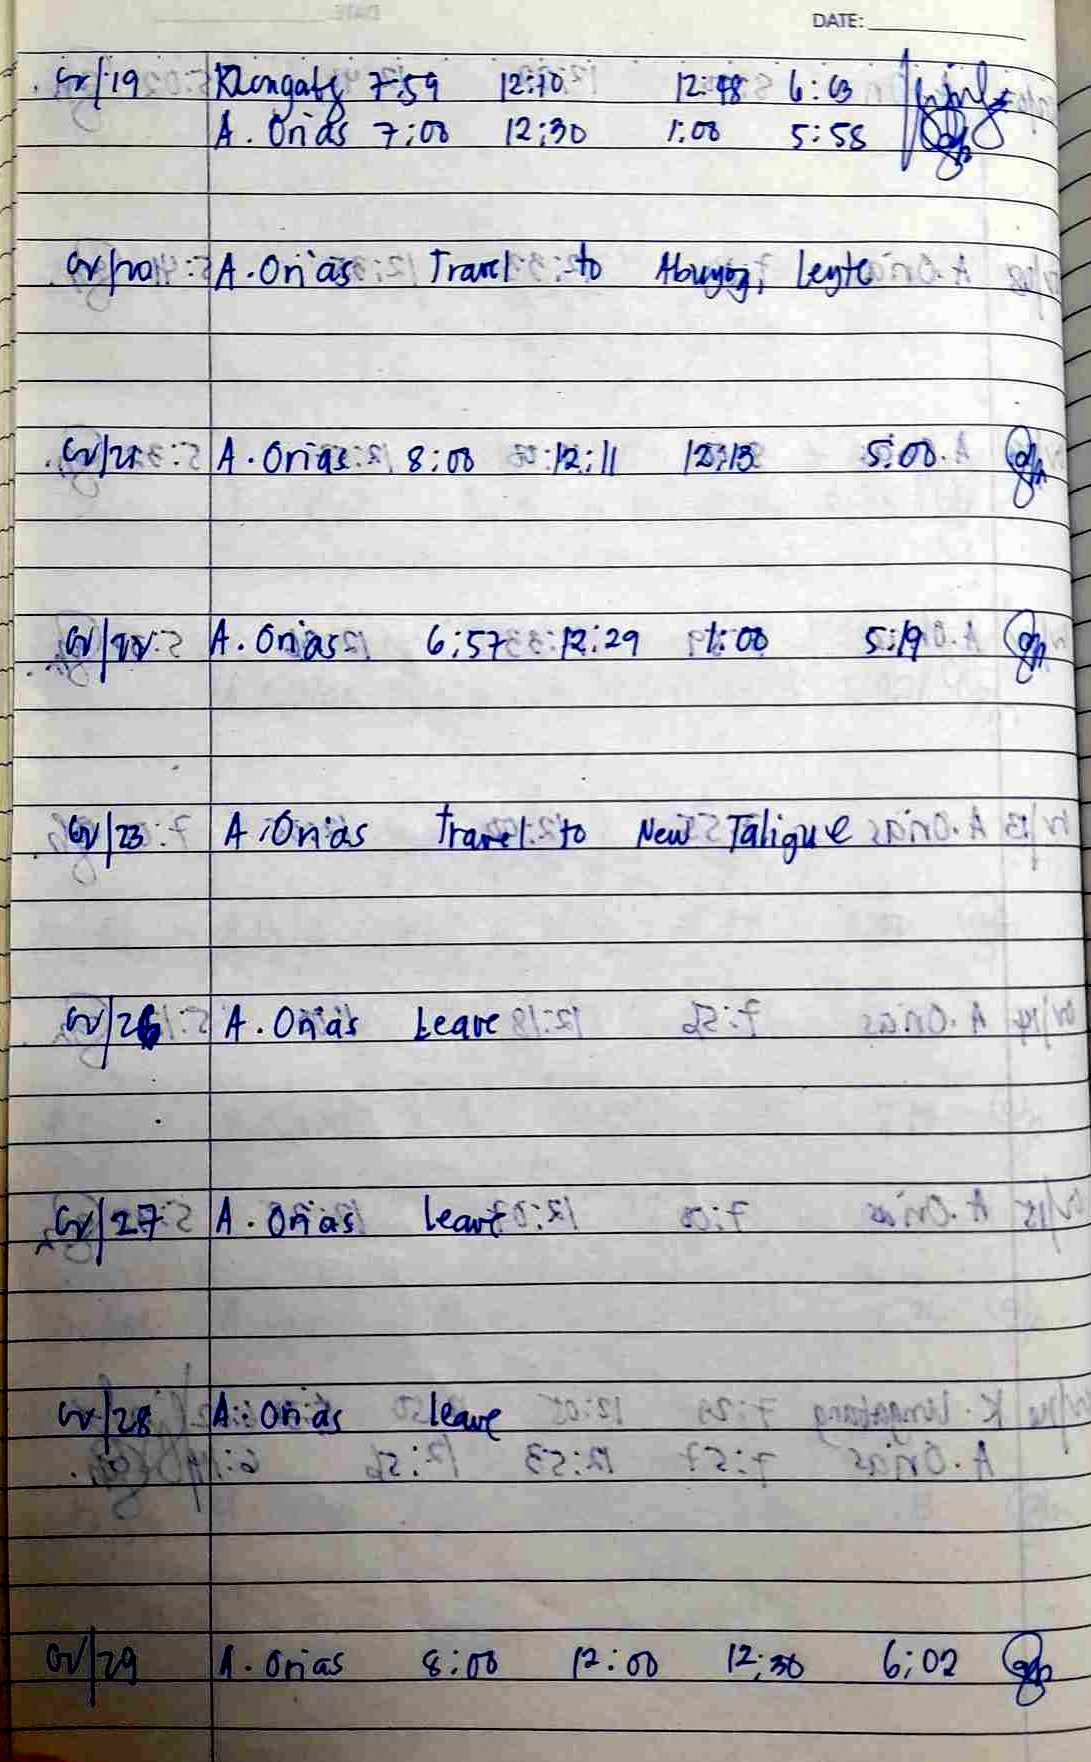 DATE:
02/19 7:59 12:10 12:48 6:03
A. Orias 7:00 12:30 1:00 5:58
02/20 A. Orias Travel to Abuyog, Leyte
02/21 A. Orias 8:00 12:11 12:13 5:00
02/22 A. Orias 6:57 12:29 1:00 5:19
02/23 A. Orias Travel to New Taligue
02/26 A. Orias Leave
02/27 A. Orias Leave
02/28 A. Orias Leave
02/29 A. Orias 8:00 12:00 12:30 6:02